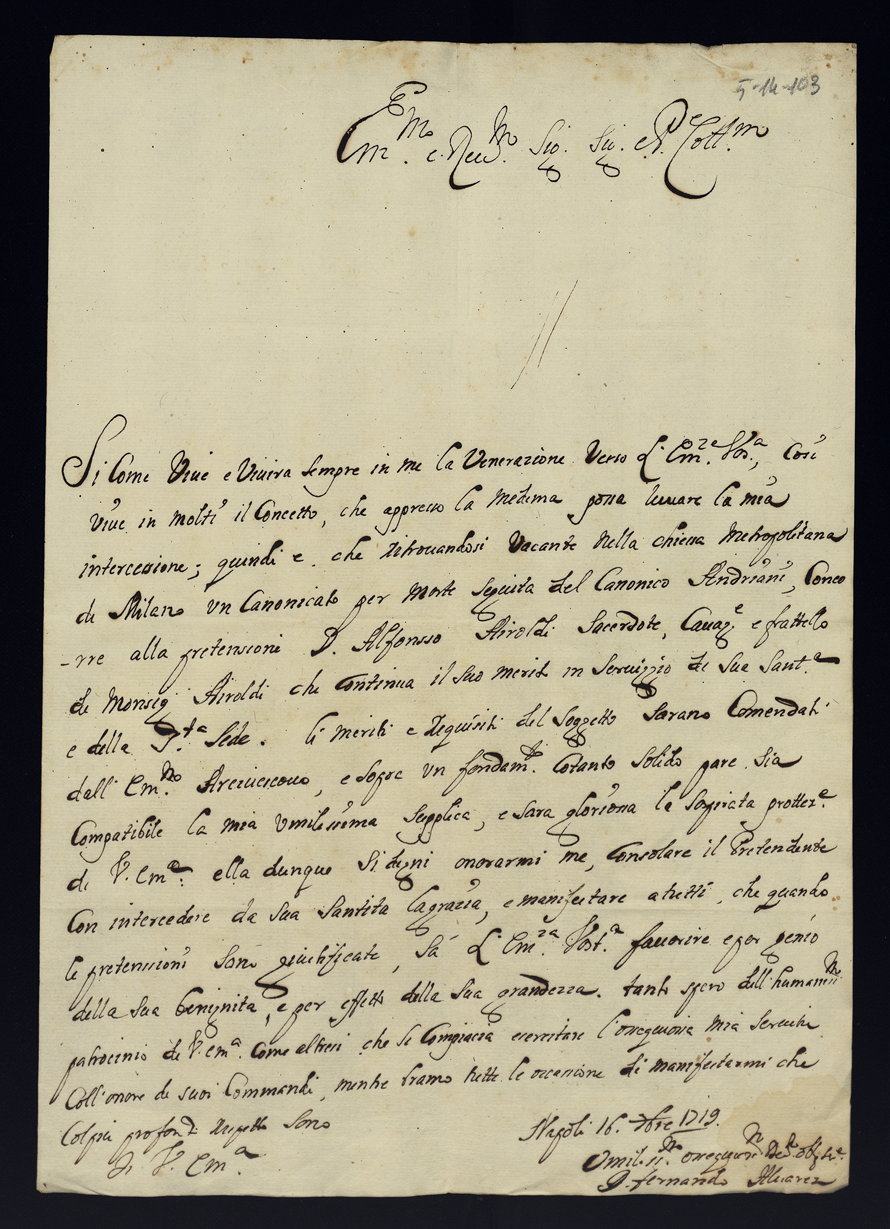 5-14-103
Em.mo e Reu.mo Sig. Sig. e P.ne Coll.mo
Si Come Viue e Viuira sempre in me la Venerazione Verso L'Em.ze Vos.a, Cosi
viue in molti il Concetto, che appresso la medema possa leuuare la mia
intercessione; quindi e che ritrouandosi Vacante nella chiesa Metropolitana
di Milano vn Canonicato per morte seguita del Canonico Andriani, Conco
-rre alla pretensioni D. Alfonsso Airoldi Sacerdote, Cauag.e e frattello
di Monsig Airoldi che Continua il suo merito in Seruizzio di Sua Sant.a
e della S.ta Sede. li meriti e requisiti del Soggetto Sarano Comendati
dall' Em.mo Arciuescouo, e Sopra vn fondam.to Cotanto solido pare sia
Compatibile la mia vmilissima supplica, e sara gloriosa la sospirata prottez.e
di V. Em.a ella dunque si degni onorarmi me, Consolare il Pretendente
Con intercedere da sua Santita la grazia, e manifestare a tutti, che quando
le pretensioni sono giustificate, sà L'Em.za Vost.a fauorire e per genio
della sua benignita, e per effetto della sua grandezza. tanto spero dell' humaniss.mo
patrocinio di V. Em.a Come altresi che si Compiacia esercitare l'ossequiosa mia seruitù
Coll' onore de suoi Commandi, mentre bramo tutte le occasione di manifestarmi che
Col più profondo rispetto sono
Di V. Em.a
Napoli 16. Xbre 1719.
Vmiliss.mo ossequios.mo De.mo obg.to
D. fernando Aluarez